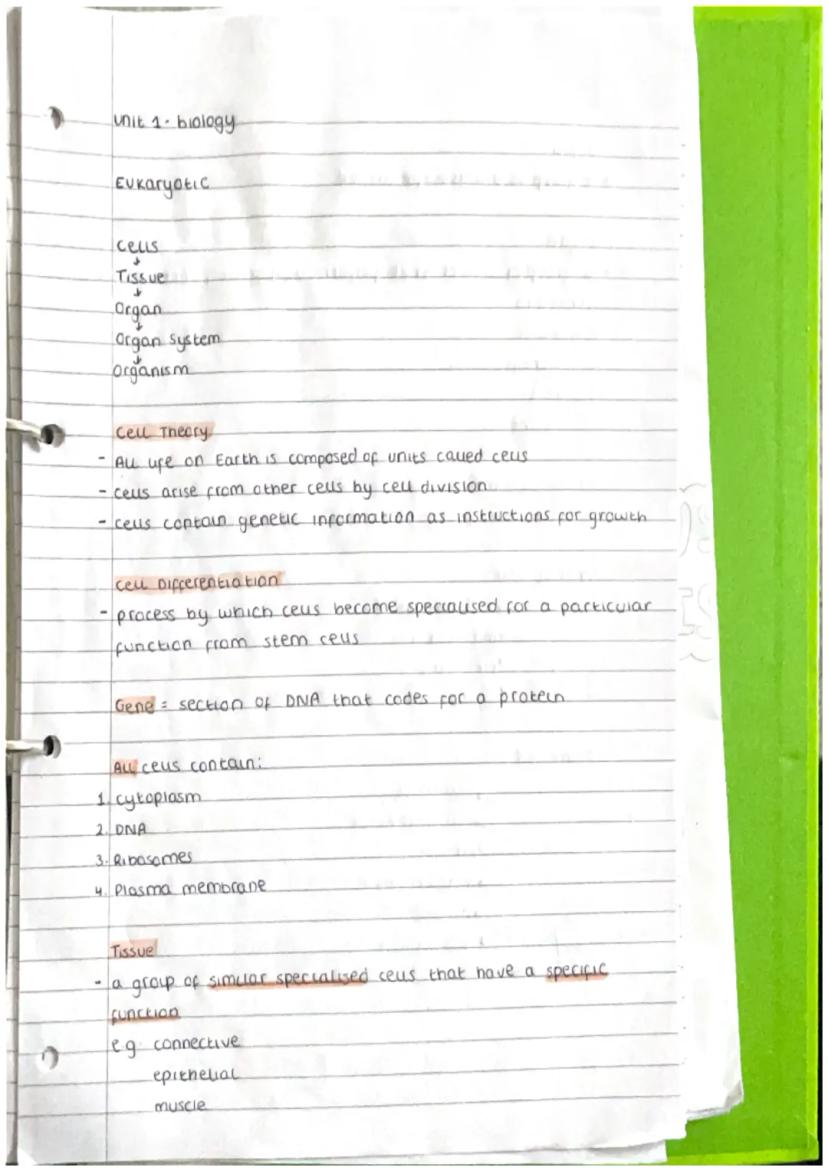 Unit 1 - biology
Eukaryotic
Cells
↓
Tissue
↓
Organ
↓
Organ System
↓
Organism
Cell Theory
- All life on Earth is composed of units called cells
- cells arise from other cells by cell division
- cells contain genetic information as instructions for growth
Cell Differentiation
- process by which cells become specialised for a particular
function from stem cells
Gene = section of DNA that codes for a protein
All cells contain:
1. cytoplasm
2. DNA
3. Ribosomes
4. Plasma membrane
Tissue
- a group of similar specialised cells that have a specific
function
e.g connective
epithelial
muscle